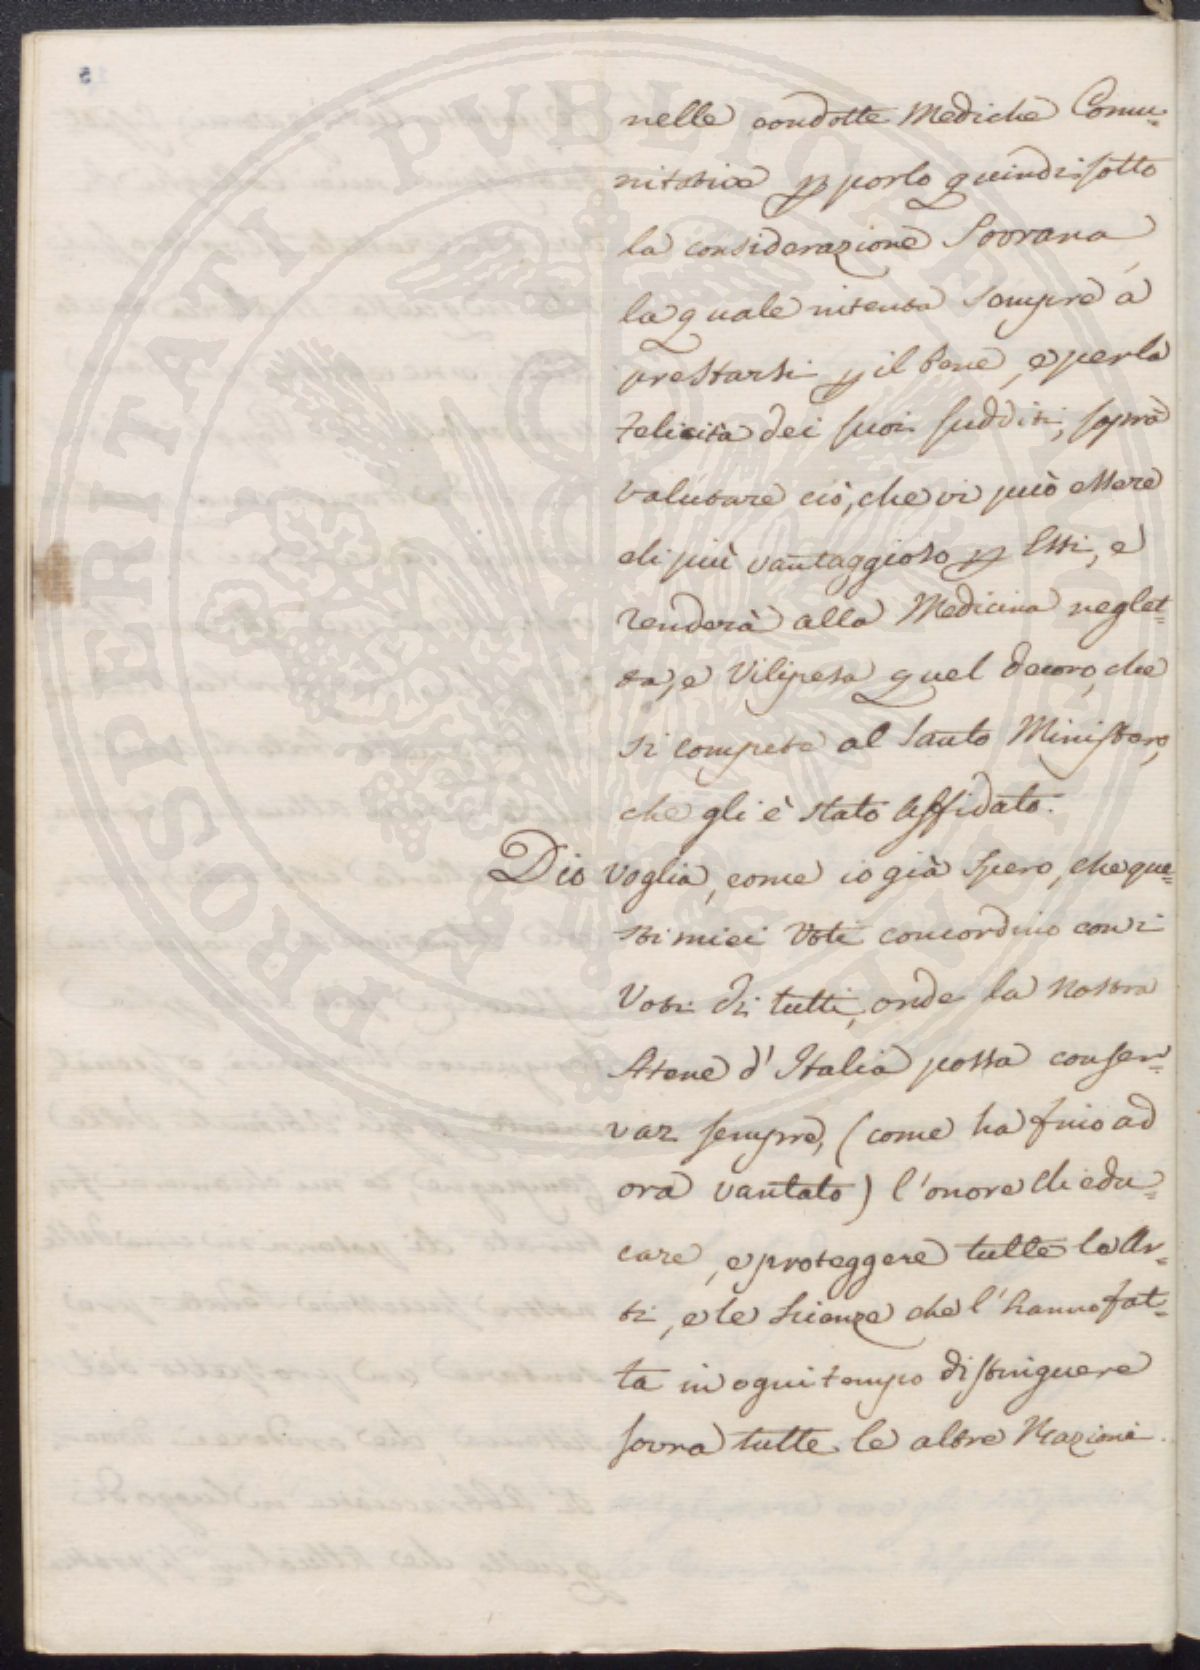 nelle condotte Mediche Comu=
nitative p porlo quindi sotto
la considerazione Sovrana,
la quale intenta sempre a
prestarsi p il bene, e per la
felicità dei suoi sudditi, saprà
valutare ciò, che vi può essere
di più vantaggioso p Essi, e
renderà alla Medicina neglet=
ta, e Vilipesa quel decoro, che
si compete al Santo Ministero,
che gli è stato Affidato.
Dio voglia, come io già spero, che que=
sti miei Voti concordino con i
Voti di tutti, onde la nostra
Atene d'Italia possa conser=
var sempre, (come ha fino ad
ora vantato) l'onore di edu=
care, e proteggere tutte le Ar=
ti, e le Scienze che l'hanno fat=
ta in ogni tempo distinguere
sovra tutte le altre Nazioni.
PROSPERITATI PVBLICAE